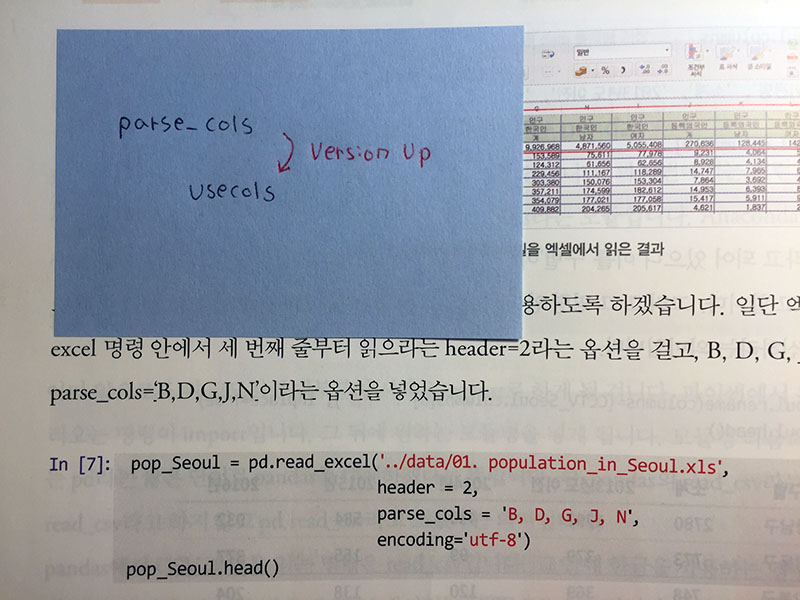 parse_cols
Version Up
usecols
일반
% ,
조건부 서식
표 서식
셀 스타일
G H I J K L
인구 인구 인구 인구 인구 인구
한국인 한국인 한국인 등록외국인 등록외국인
계 남자 여자 계 남자
9,926,968 4,871,560 5,055,408 270,636 128,445 142
153,589 75,611 77,978 9,231 4,084
124,312 61,656 62,656 8,928 4,134
229,456 111,167 118,289 14,747 7,965
303,380 150,076 153,304 7,864 3,692
357,211 174,599 182,612 14,953 6,393
354,079 177,021 177,058 15,417 5,911
409,882 204,265 205,617 4,621 1,837
엑셀에서 읽은 결과
용하도록 하겠습니다. 일단 엑
excel 명령 안에서 세 번째 줄부터 읽으라는 header=2라는 옵션을 걸고, B, D, G,
parse_cols='B,D,G,J,N'이라는 옵션을 넣었습니다.
In [7]: pop_Seoul = pd.read_excel('../data/01. population_in_Seoul.xls',
header = 2,
parse_cols = 'B, D, G, J, N',
encoding='utf-8')
pop_Seoul.head()